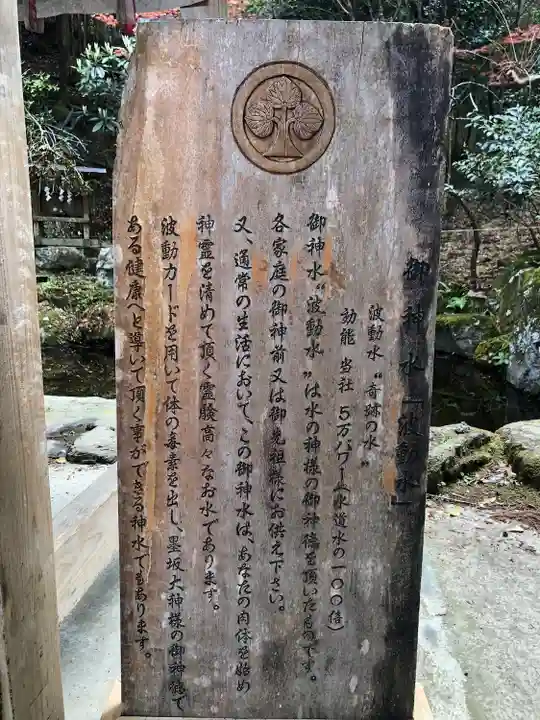 御神水「波動水」
波動水 “奇跡の水”
効能 当社 5万パワー(水道水の一〇〇倍)
御神水“波動水”は水の神様の御神徳を頂いたものです。
各家庭の御神前又は御先祖様にお供え下さい。
又、通常の生活において、この御神水は、あなたの肉体を始め
神霊を清めて頂く霊験高々なお水であります。
波動カードを用いて体の毒素を出し、墨坂大神様の御神徳で
ある健康へと導いて頂く事ができる神水でもあります。